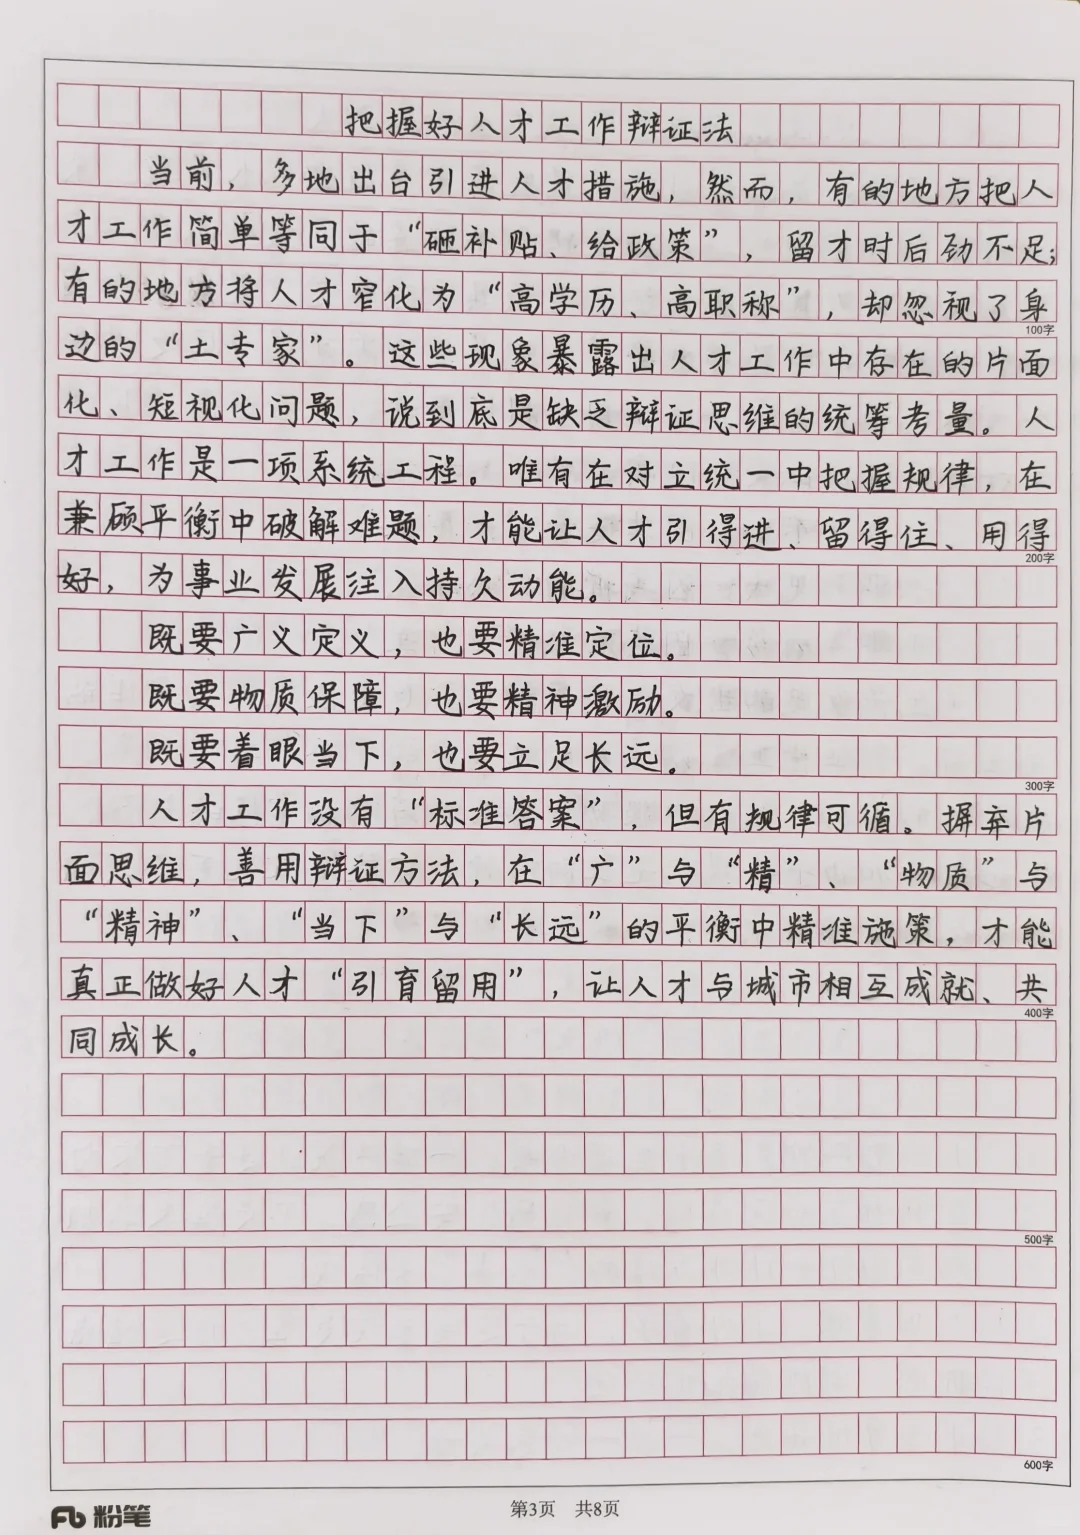 把握好人才工作辩证法
当前，多地出台引进人才措施，然而，有的地方把人
才工作简单等同于“砸补贴、给政策”，留才时后劲不足；
有的地方将人才窄化为“高学历、高职称”，却忽视了身
100字
边的“土专家”。这些现象暴露出人才工作中存在的片面
化、短视化问题，说到底是缺乏辩证思维的统筹考量。人
才工作是一项系统工程。唯有在对立统一中把握规律，在
兼顾平衡中破解难题，才能让人才引得进、留得住、用得
200字
好，为事业发展注入持久动能。
既要广义定义，也要精准定位。
既要物质保障，也要精神激励。
既要着眼当下，也要立足长远。
300字
人才工作没有“标准答案”，但有规律可循。摒弃片
面思维，善用辩证方法，在“广”与“精”、“物质”与
“精神”、“当下”与“长远”的平衡中精准施策，才能
真正做好人才“引育留用”，让人才与城市相互成就、共
400字
同成长。
500字
600字
粉笔
第3页 共8页